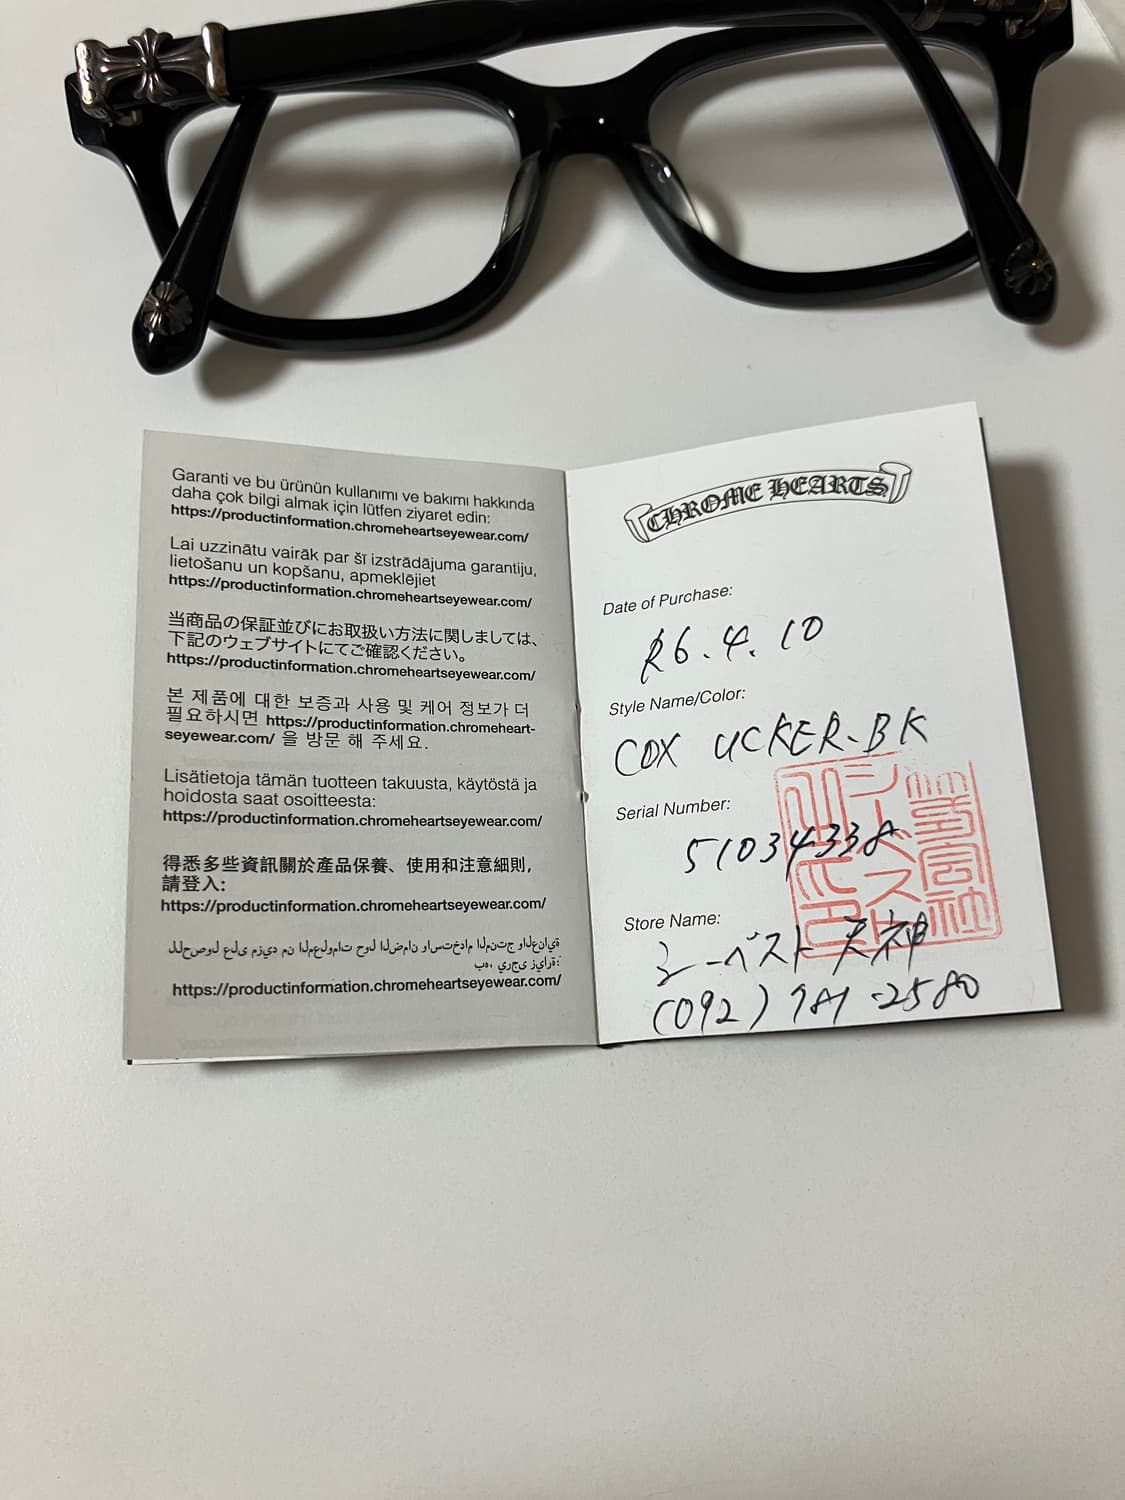 Garanti ve bu ürünün kullanımı ve bakımı hakkında
daha çok bilgi almak için lütfen ziyaret edin:
https://productinformation.chromeheartseyewear.com/
Lai uzzinātu vairāk par šī izstrādājuma garantiju,
lietošanu un kopšanu, apmeklējiet
https://productinformation.chromeheartseyewear.com/
当商品の保証並びにお取扱い方法に関しましては、
下記のウェブサイトにてご確認ください。
https://productinformation.chromeheartseyewear.com/
본 제품에 대한 보증과 사용 및 케어 정보가 더
필요하시면 https://productinformation.chromeheart-
seyewear.com/ 을 방문 해 주세요.
Lisätietoja tämän tuotteen takuusta, käytöstä ja
hoidosta saat osoitteesta:
https://productinformation.chromeheartseyewear.com/
得悉多些資訊關於產品保養、使用和注意細則,
請登入:
https://productinformation.chromeheartseyewear.com/
للحصول على مزيد من المعلومات حول الضمان واستخدام المنتج والعناية
به، يرجى زيارة:
https://productinformation.chromeheartseyewear.com/
CHROME HEARTS
Date of Purchase:
R6.4.10
Style Name/Color:
COX UCKER-BK
Serial Number:
51034338
Store Name:
シーベスト 天神
(092) 781-2580